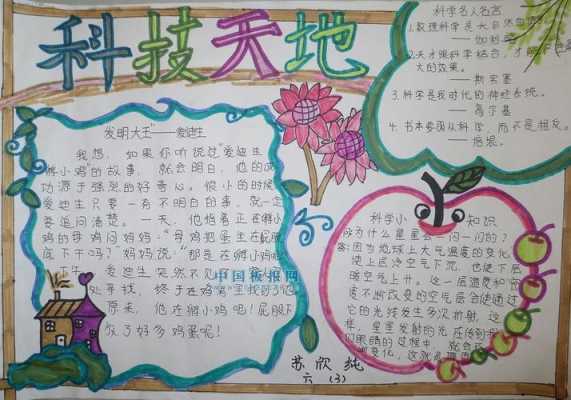 科技天地
科学名人名言
1.数理科学是大自然的语言。
——伽利略
2.天才跟科学结合，才能产生最
大的效果。
——斯宾塞
3.科学是我时代的神经系统。
——高尔基
4.书本要跟从科学，而不是相反。
——培根。
发明大王"——爱迪生
我想，如果你听说过"爱迪生
孵小鸡"的故事，就会明白，他的成
功源于强烈的好奇心。很小的时候
爱迪生只要一有不明白的事，就一定
要追问清楚。一天，他指着正在孵小
鸡的母鸡问妈妈："母鸡把蛋坐在屁股
底下干吗？"妈妈说："那是在孵小鸡
爱迪生突然不见了
处寻找，终于在鸡窝里找到了他
原来，他在孵小鸡吧！屁股下
放了好多鸡蛋呢！
中国板报网
科学小知识
为什么星星会一闪一闪的？
答:因为地球上大气温度的变化，
使上层冷空气下沉，也使下层
暖空气上升。这一层温度和密
度不断改变的空气层会使通过
它的光线发生多次折射，这
样，星星发射的光在传到我
们眼睛的过程中，就会
变化，这就
苏欣纯
六（3）